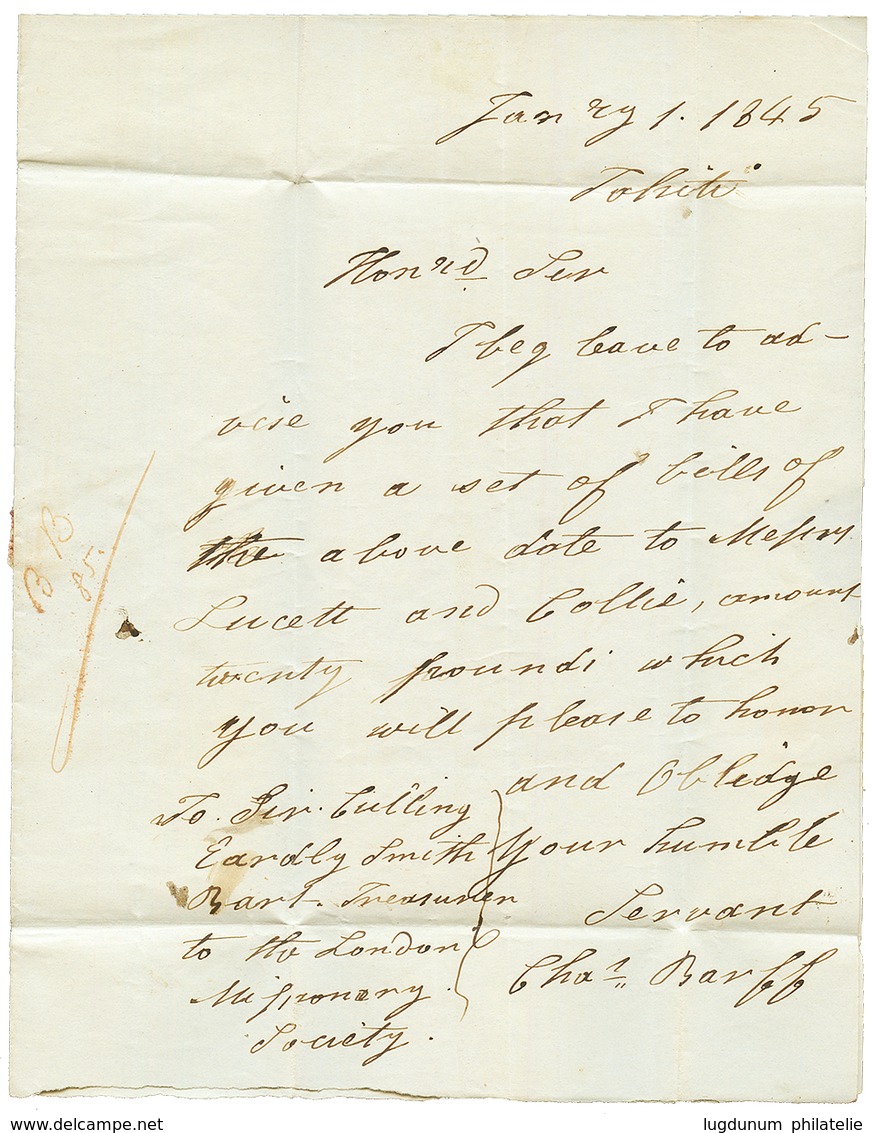 Janry 1. 1845
Tahiti
Honrd Sir
I beg leave to ad-
vise you that I have
given a set of bills of
the above date to Messrs
Lucett and Collie, amount
twenty pounds which
you will please to honor
and Oblidge
Your humble
Servant
Chas Barff
To. Sir. Culling
Eardly Smith
Bart. Treasurer
to the London
Missionary
Society.
B B
85.
delcampe.net
lugdunum philatelie